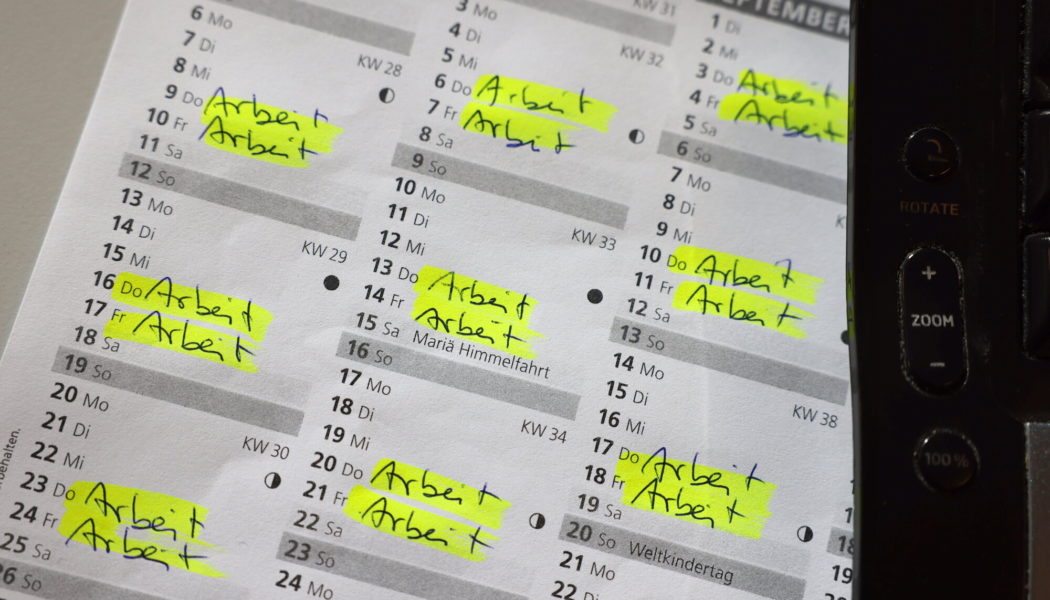 6 Mo
7 Di
8 Mi
9 Do Arbeit
10 Fr Arbeit
11 Sa
12 So
13 Mo
14 Di
15 Mi
16 Do Arbeit
17 Fr Arbeit
18 Sa
19 So
20 Mo
21 Di
22 Mi
23 Do Arbeit
24 Fr Arbeit
25 Sa
26 So
KW 28
KW 29
KW 30
3 Mo
4 Di
5 Mi
6 Do Arbeit
7 Fr Arbeit
8 Sa
9 So
10 Mo
11 Di
12 Mi
13 Do Arbeit
14 Fr Arbeit
15 Sa Mariä Himmelfahrt
16 So
17 Mo
18 Di
19 Mi
20 Do Arbeit
21 Fr Arbeit
22 Sa
23 So
24 Mo
KW 31
KW 32
KW 33
KW 34
EPTEMBER
1 Di
2 Mi
3 Do Arbeit
4 Fr Arbeit
5 Sa
6 So
7 Mo
8 Di
9 Mi
10 Do Arbeit
11 Fr Arbeit
12 Sa
13 So
14 Mo
15 Di
16 Mi
17 Do Arbeit
18 Fr Arbeit
19 Sa
20 So Weltkindertag
21 Mo
22 Di
KW 38
18
19
ROTATE
+
ZOOM
−
100%